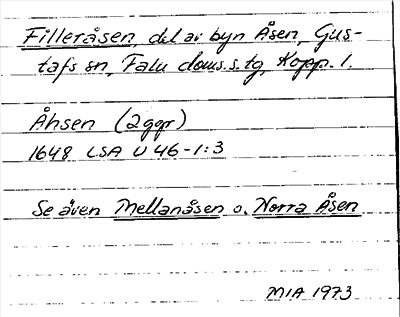 Filleråsen, del av byn Åsen, Gus-
tafs sn, Falu doms. s. tg, Kopp. l.
Åhsen (2 ggr)
1648 LSA U 46-1:3
Se även Mellanåsen o. Norra Åsen
MIA 1973